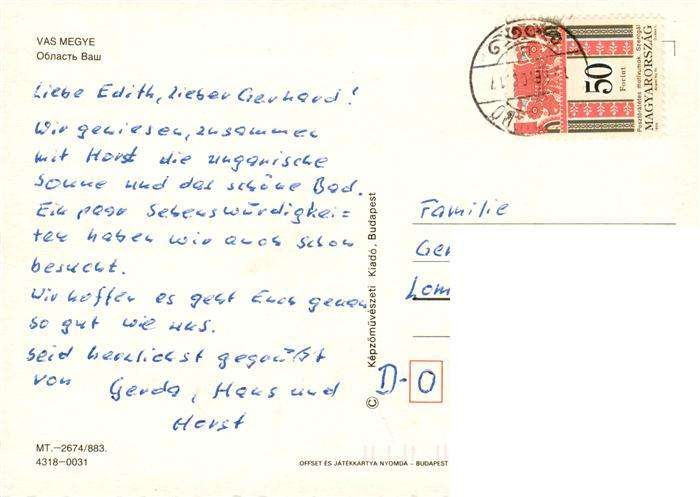 VAS MEGYE
Область Ваш
Liebe Edith, lieber Gerhard!
Wir geniesen, zusammen
mit Horst die ungarische
Sonne und das schöne Bad.
Ein paar Sehenswürdigkei=
ten haben wir auch schon
besucht.
Wir hoffen es geht Euch genau
so gut wie uns.
Seid herzlichst gegrüßt
von Gerda, Hans und
Horst
MT.—2674/883.
4318—0031
© Képzőművészeti Kiadó, Budapest
OFFSET ÉS JÁTÉKKÁRTYA NYOMDA – BUDAPEST
50
Forint
MAGYARORSZÁG
Familie
Ger
Lom
D-O